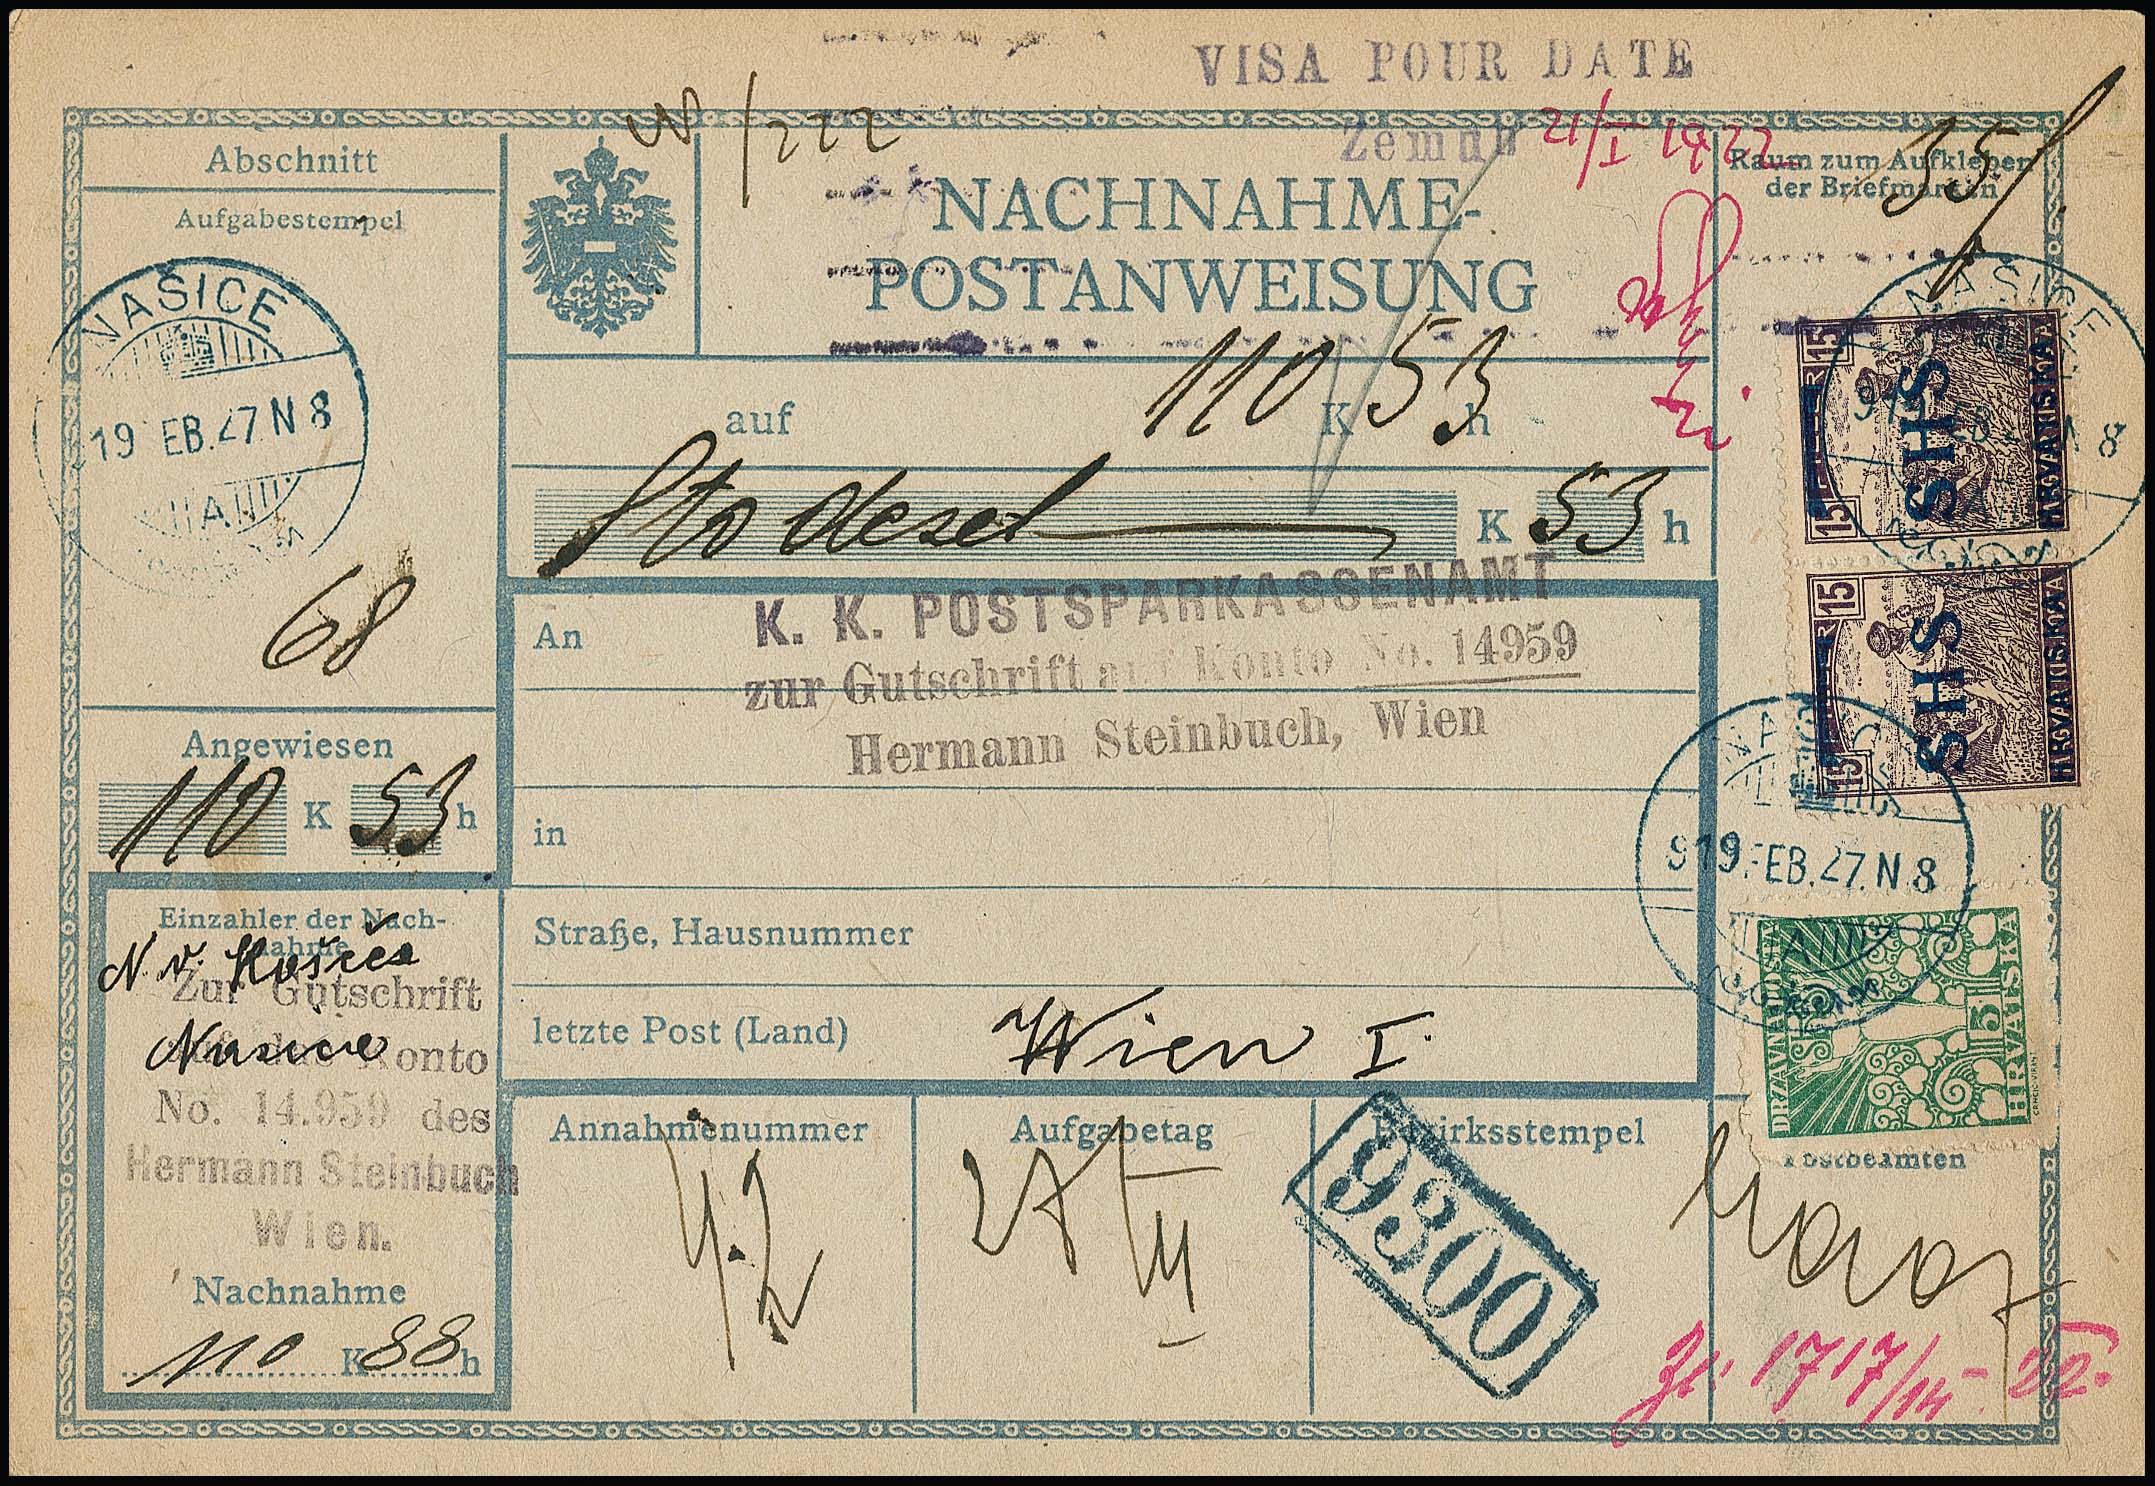 VISA POUR DATE
Zemun 21/I 1922
Abschnitt
Aufgabestempel
NAŠICE
19 EB.27.N8
A
68
Angewiesen
110 K 53 h
Einzahler der Nach-
nahme
N. v.
Zur Gutschrift
Konto
No. 14.959 des
Hermann Steinbuch
Wien.
Nachnahme
110 K 88 h
/222
NACHNAHME-
POSTANWEISUNG
auf 110 K 53 h
Sto deset K 53 h
An
K. K. POSTSPARKASSENAMT
zur Gutschrift auf Konto No. 14959
Hermann Steinbuch, Wien
in
Straße, Hausnummer
letzte Post (Land) Wien I.
Annahmenummer
Aufgabetag
27/II
Bezirksstempel
9300
Raum zum Aufkleben
der Briefmarken
35
NAŠICE
8
15 15
SHS
HRVATSKA
15 15
SHS
HRVATSKA
919.FEB.27.N.8
A
DRŽAVNA
5 5
HRVATSKA
Postbeamten
1717/14-22.